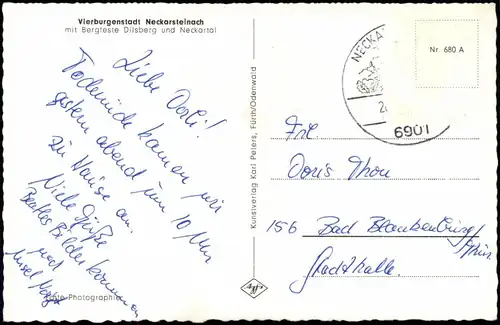 Vierburgenstadt Neckarsteinach
mit Bergfeste Dilsberg und Neckartal
Liebe Dorli!
Todmüde kamen wir
gestern abend um 10 Uhr
zu Hause an.
Viele Grüße
Beates Bilder kommen
noch
Echte Photographie
Kunstverlag Karl Peters, Fürth/Odenwald
Agfa
Nr. 680 A
NECKA
6901
Frl
Doris Thon
156 Bad Blankenburg/
Thür
Stadthalle.